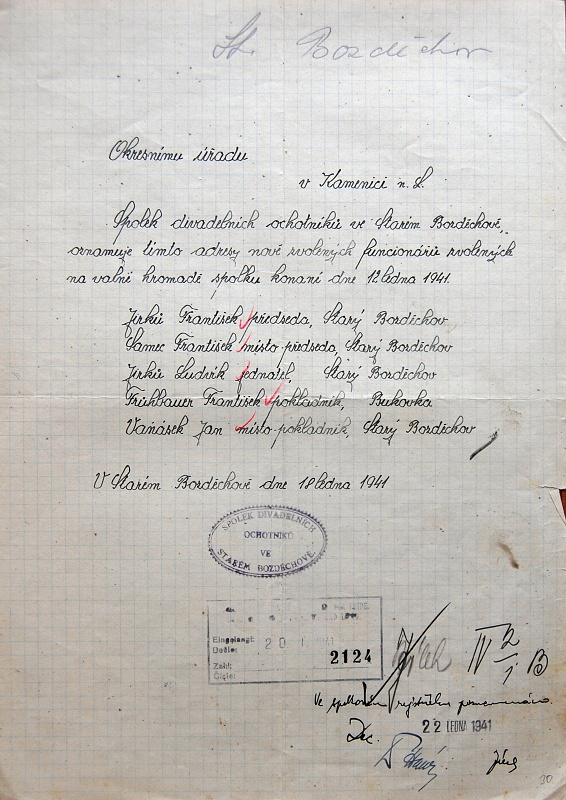 St. Bozděchov
Okresnímu úřadu
v Kamenici n. L.
Spolek divadelních ochotníků ve Starém Bozděchově,
oznamuje tímto adresy nově zvolených funcionářů zvolených
na valné hromadě spolku konané dne 12 ledna 1941.
Jirků František předseda, Starý Bozděchov
Samec František místo-předseda, Starý Bozděchov
Jirků Ludvík jednatel, Starý Bozděchov
Frühbauer František pokladník, Bukovka
Vaňásek Jan místo-pokladník, Starý Bozděchov
V Starém Bozděchově dne 18 ledna 1941
SPOLEK DIVADELNÍCH
OCHOTNÍKŮ
VE
STARÉM BOZDĚCHOVĚ.
Eingelangt:
Došlo: 20 1941
2124
Zahl:
Číslo:
IV 2/1 B
Ve spolkovém rejstříku poznamenáno.
22 LEDNA 1941
30